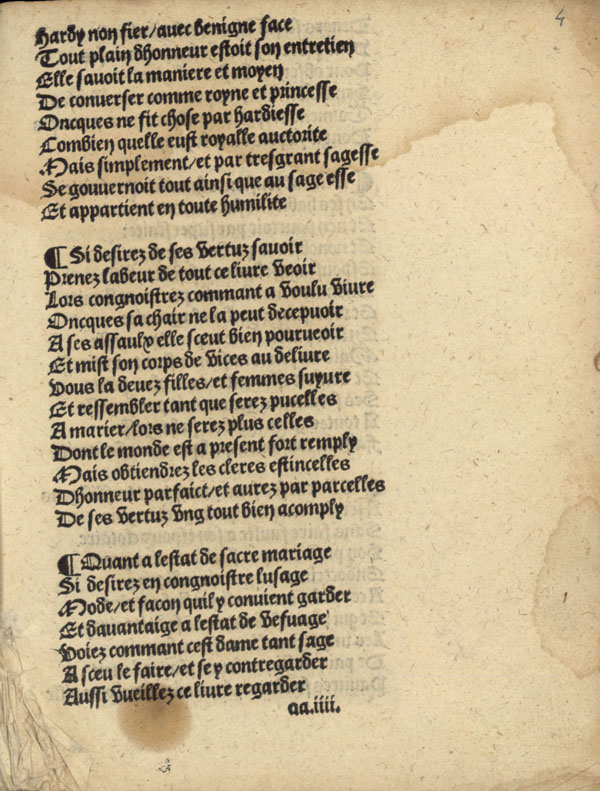 4
Hardy non fier/avec benigne face
Tout plain dhonneur estoit son entretien
Elle savoit la maniere et moyen
De converser comme royne et princesse
Oncques ne fit chose par hardiesse
Combien quelle eust royalle auctorite
Mais simplement/et par tresgrant sagesse
Se gouvernoit tout ainsi que au sage esse
Et appartient en toute humilite
¶ Si desirez de ses vertuz savoir
Prenez labeur de tout ce livre veoir
Lors congnoistrez commant a voulu vivre
Oncques sa chair ne la peut decepuoir
A ses assaulx elle sceut bien pourueoir
Et mist son corps de vices au delivre
Vous la devez filles/et femmes suyure
Et ressembler tant que serez pucelles
A marier/lors ne serez plus celles
Dont le monde est a present fort remply
Mais obtiendrez les cleres estincelles
Dhonneur parfaict/et aurez par parcelles
De ses vertuz vng tout bien acomply
¶ Quant a lestat de sacre mariage
Si desirez en congnoistre lusage
Mode/et facon quil y convient garder
Et davantaige a lestat de vefuage
Voiez commant cest dame tant sage
A sceu le faire/et se y contregarder
Aussi vueillez ce livre regarder
aa.iiii.